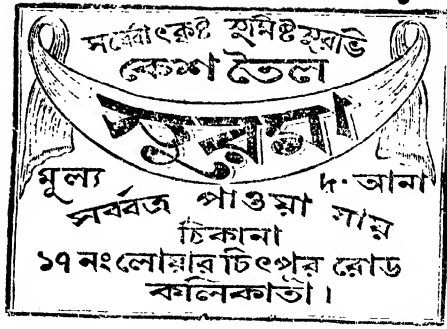 সর্ব্বোৎকৃষ্ট সুমিষ্ট সুরভি
কেশ তৈল
মূল্য ৸৹ আনা
সর্ব্বত্র পাওয়া যায়
ঠিকানা
১৭ নং লোয়ার চিৎপুর রোড
কলিকাতা।